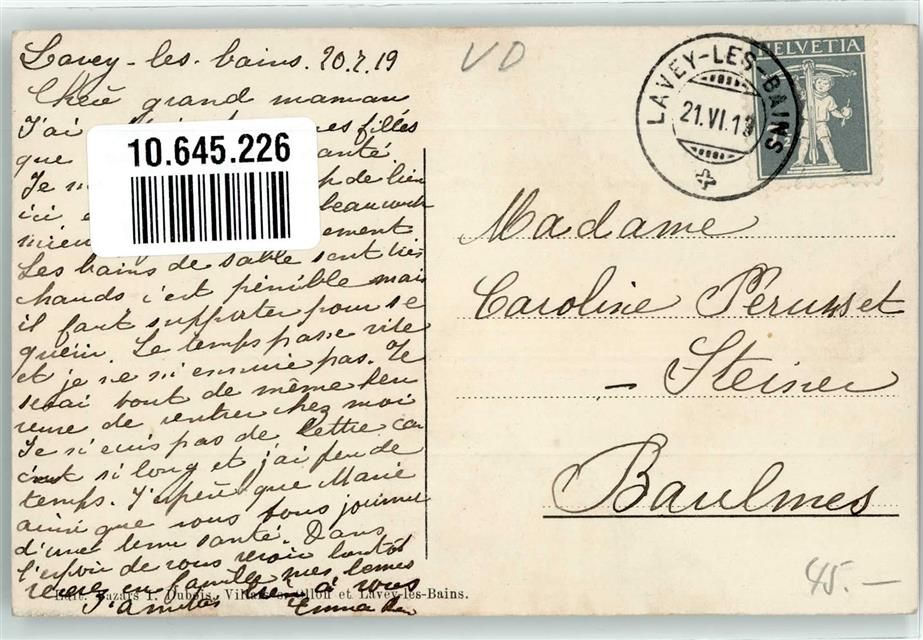 Lavey-les-bains. 20.7.19
VD
HELVETIA
LAVEY-LES-BAINS
21.VI.19
Chère grand maman
J'ai mes filles
que santé
10.645.226
Je p de bien
ici e beaucoup
mieu ement
Les bains de sable sont très
chauds c'est pénible mais
il faut supporter pour se
guérir. Le temps passe vite
et je ne m'ennuie pas. Je
serai tout de même heu
reuse de rentrer chez moi
Je n'écris pas de lettre car
c'est si long et j'ai peu de
temps. J'espère que Marie
ainsi que vous tous jouissez
d'une bonne santé. Dans
l'espoir de vous revoir bientôt
recevez en famille mes bonnes
amitiés à vous
Emma
Madame
Caroline Perusset
- Steiner
Baulmes
45.-
Edit. Bazars J. Dubois, Villars s. Ollon et Lavey-les-Bains.